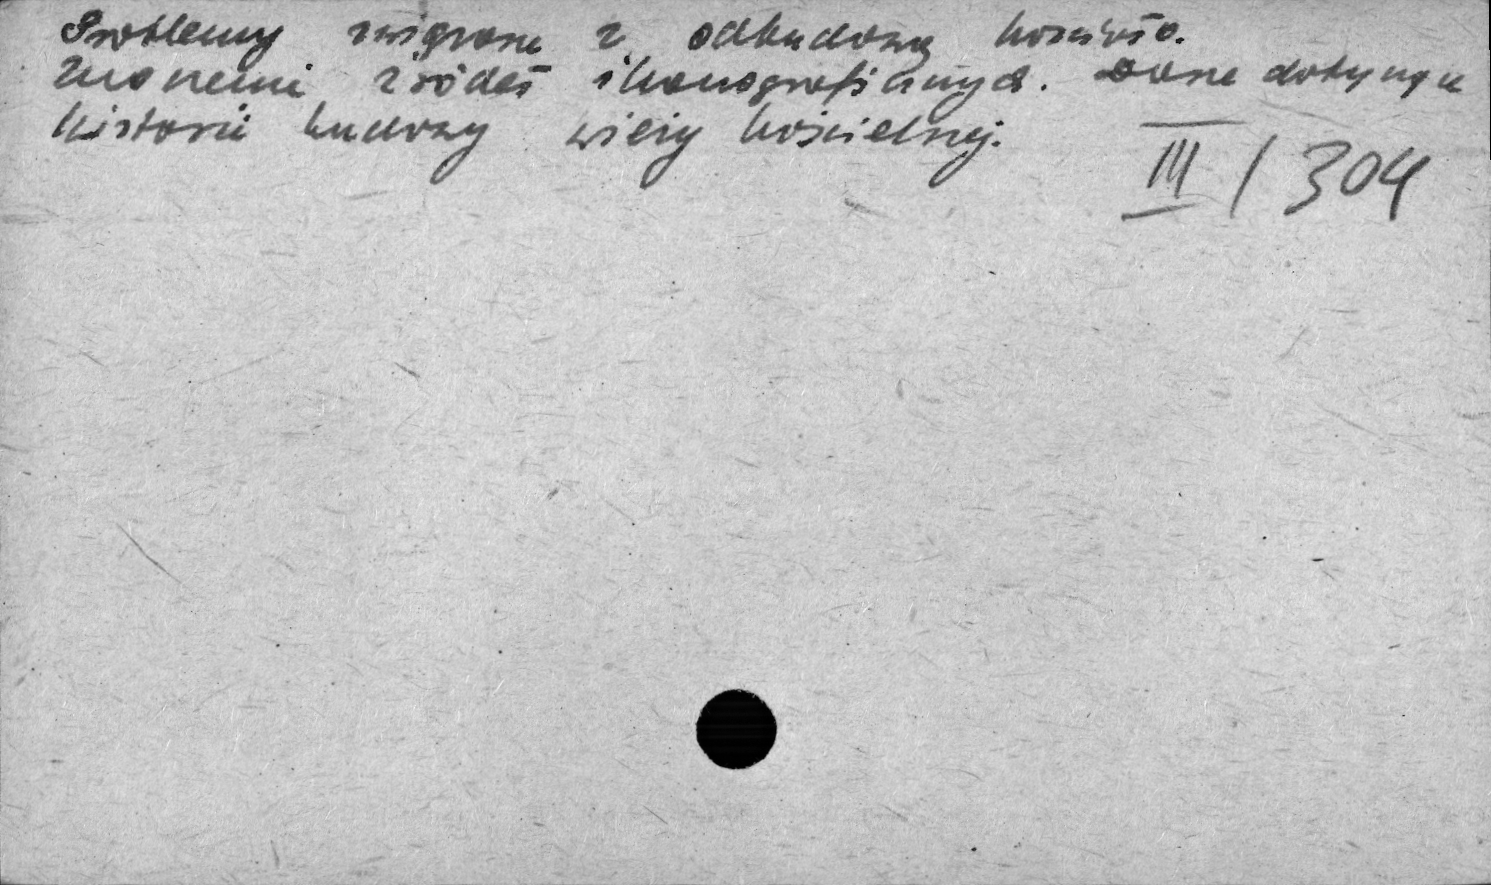 Problemy związane z odbudową kościoła.
Znaczenie źródeł ikonograficznych. Dane dotyczące
historii budowy wieży kościelnej.
III / 304